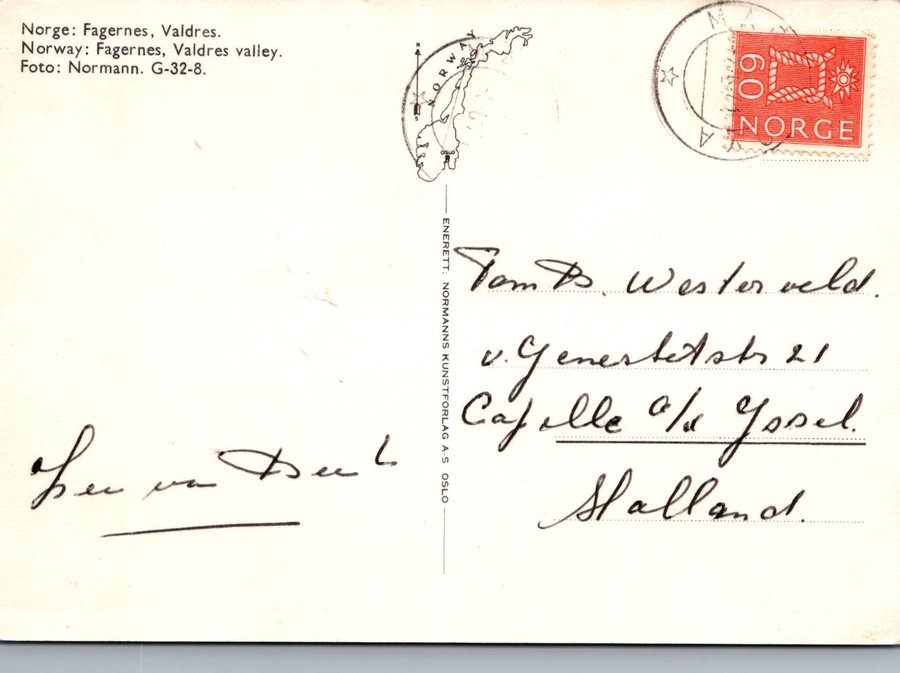 Norge: Fagernes, Valdres.
Norway: Fagernes, Valdres valley.
Foto: Normann. G-32-8.
NORWAY
60
NORGE
ENERETT: NORMANNS KUNSTFORLAG A-S OSLO
Tom B. Westerveld.
v. Genestetstr 21
Capelle a/d Yssel.
Holland.
van